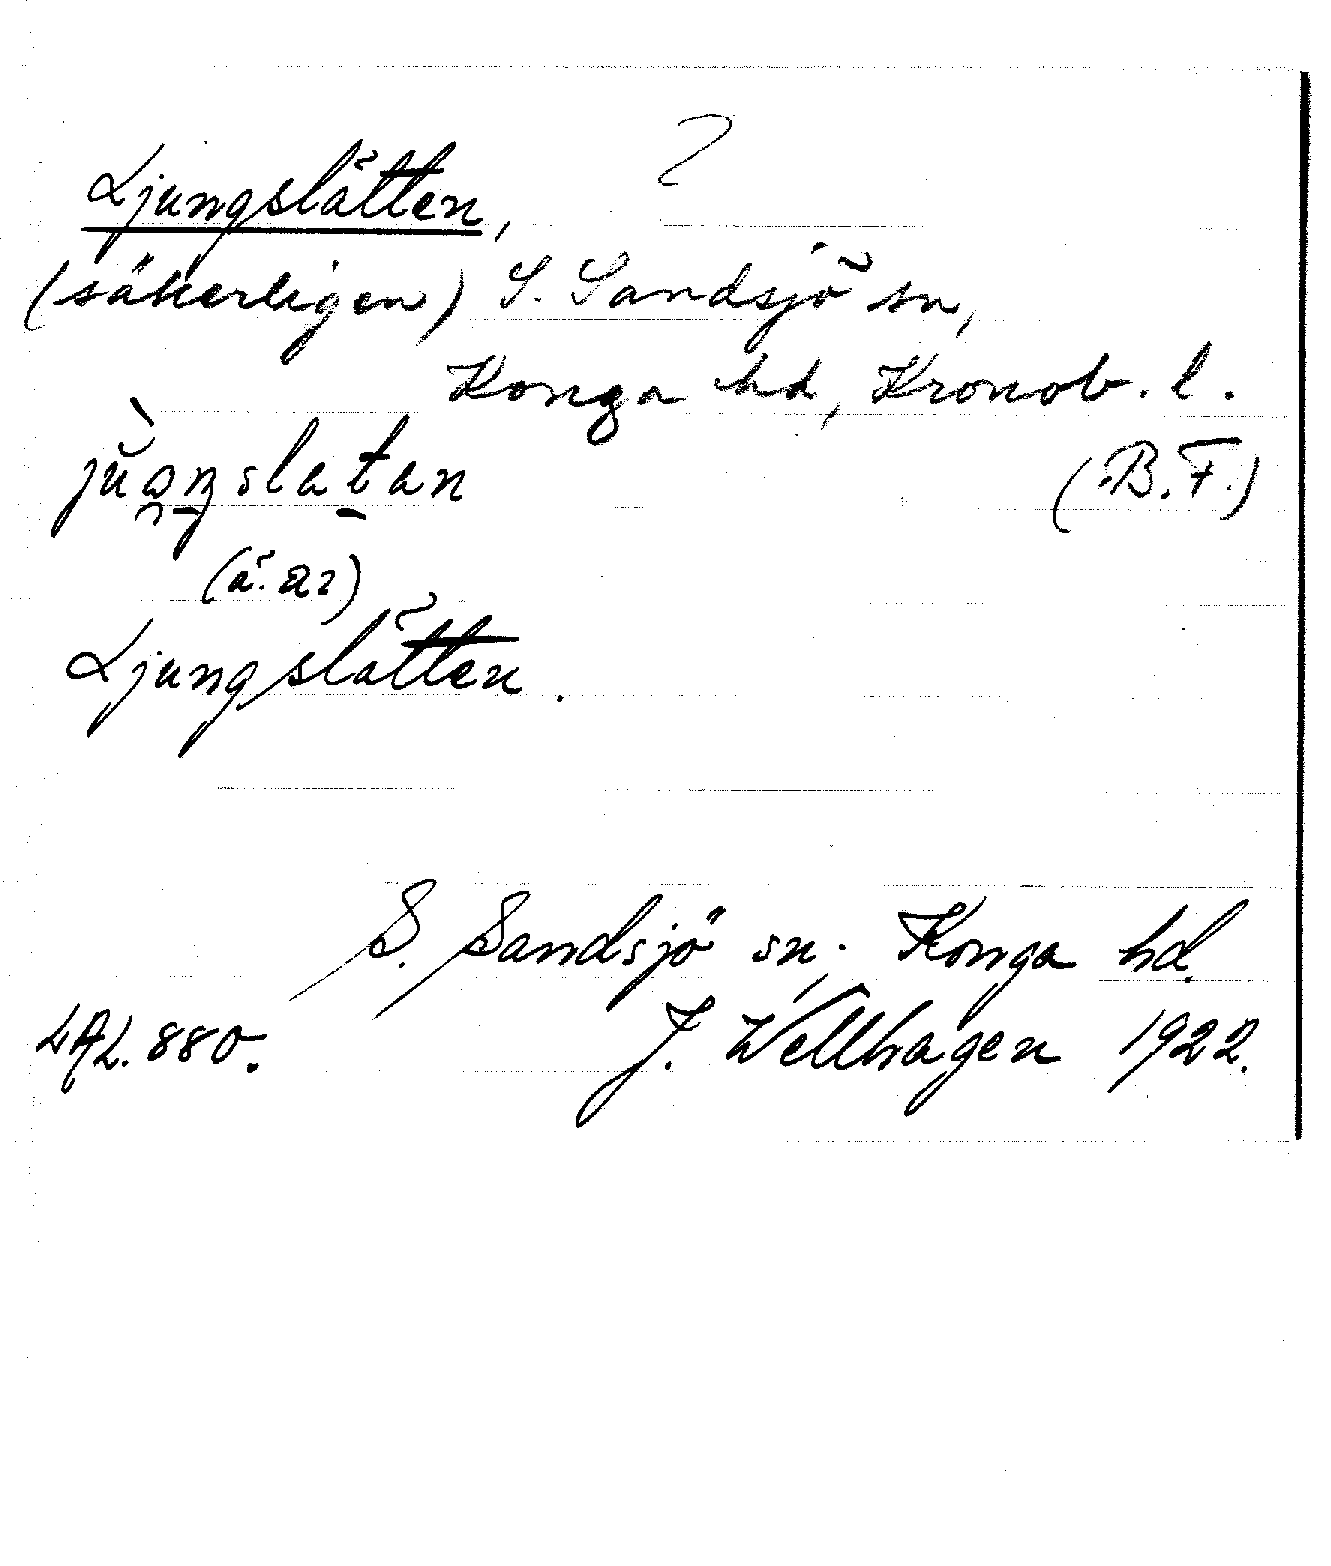 ?
Ljungslätten,
(säkerligen) S. Sandsjö sn,
Konga hd, Kronob. l.
(B.F.)
Ljungslätten.
S. Sandsjö sn, Konga hd.
LAL. 880. J. Wellhagen 1922.